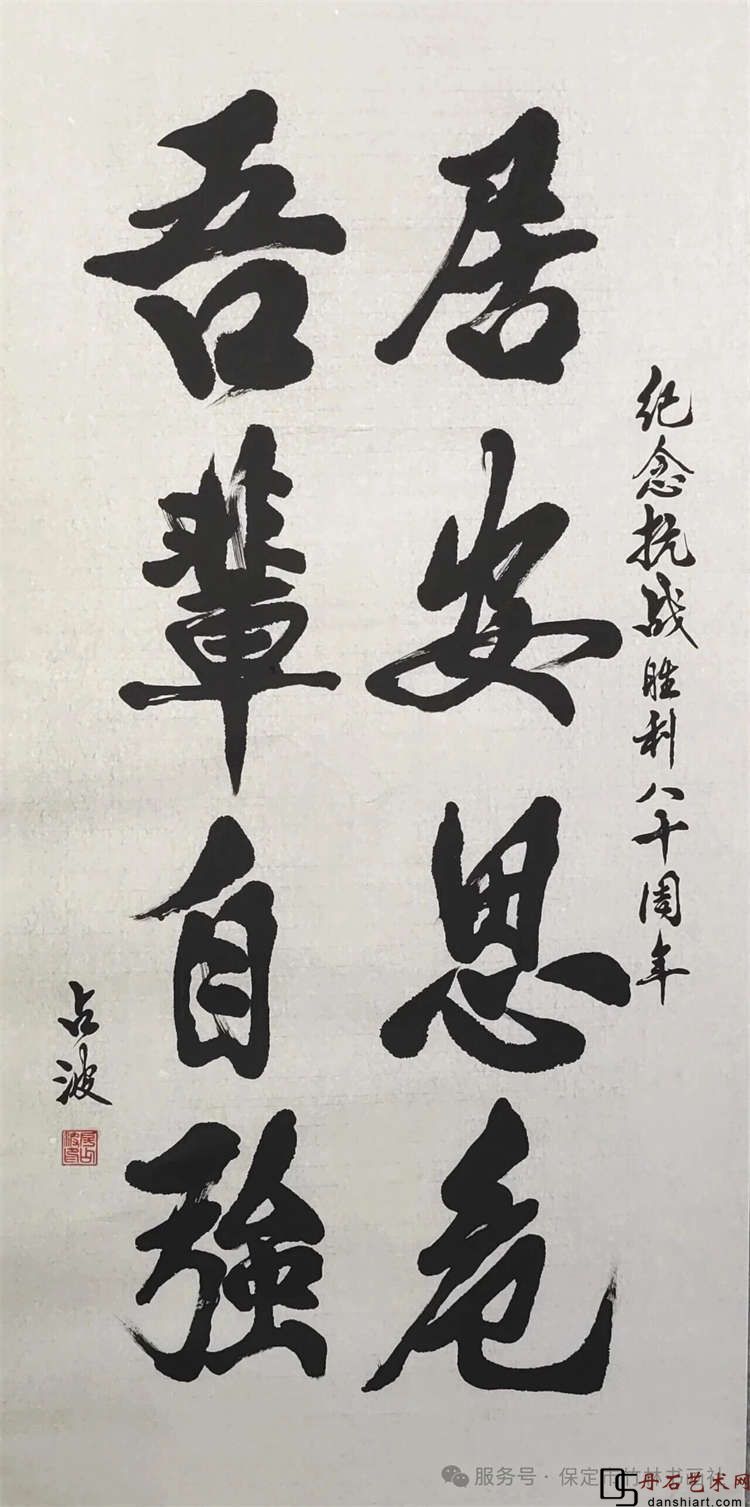 纪念抗战胜利八十周年
居安思危
吾輩自強
占波
服务号·保定市竹林书画社
丹石艺术网
danshiart.com